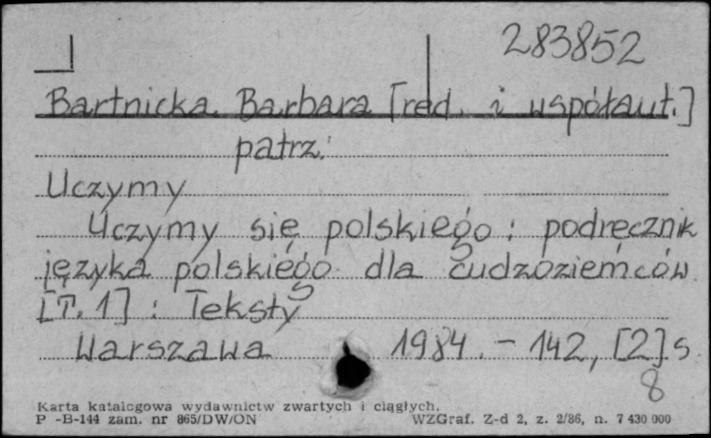 283852
Bartnicka Barbara [red. i współaut.]
patrz:
Uczymy
Uczymy się polskiego : podręcznik
języka polskiego dla cudzoziemców.
[T. 1] : Teksty
Warszawa 1984. - 142, [2] s.
8
Karta katalogowa wydawnictw zwartych i ciągłych.
P -B-144 zam. nr 865/DW/ON WZGraf. Z-d 2, z. 2/86, n. 7 430 000